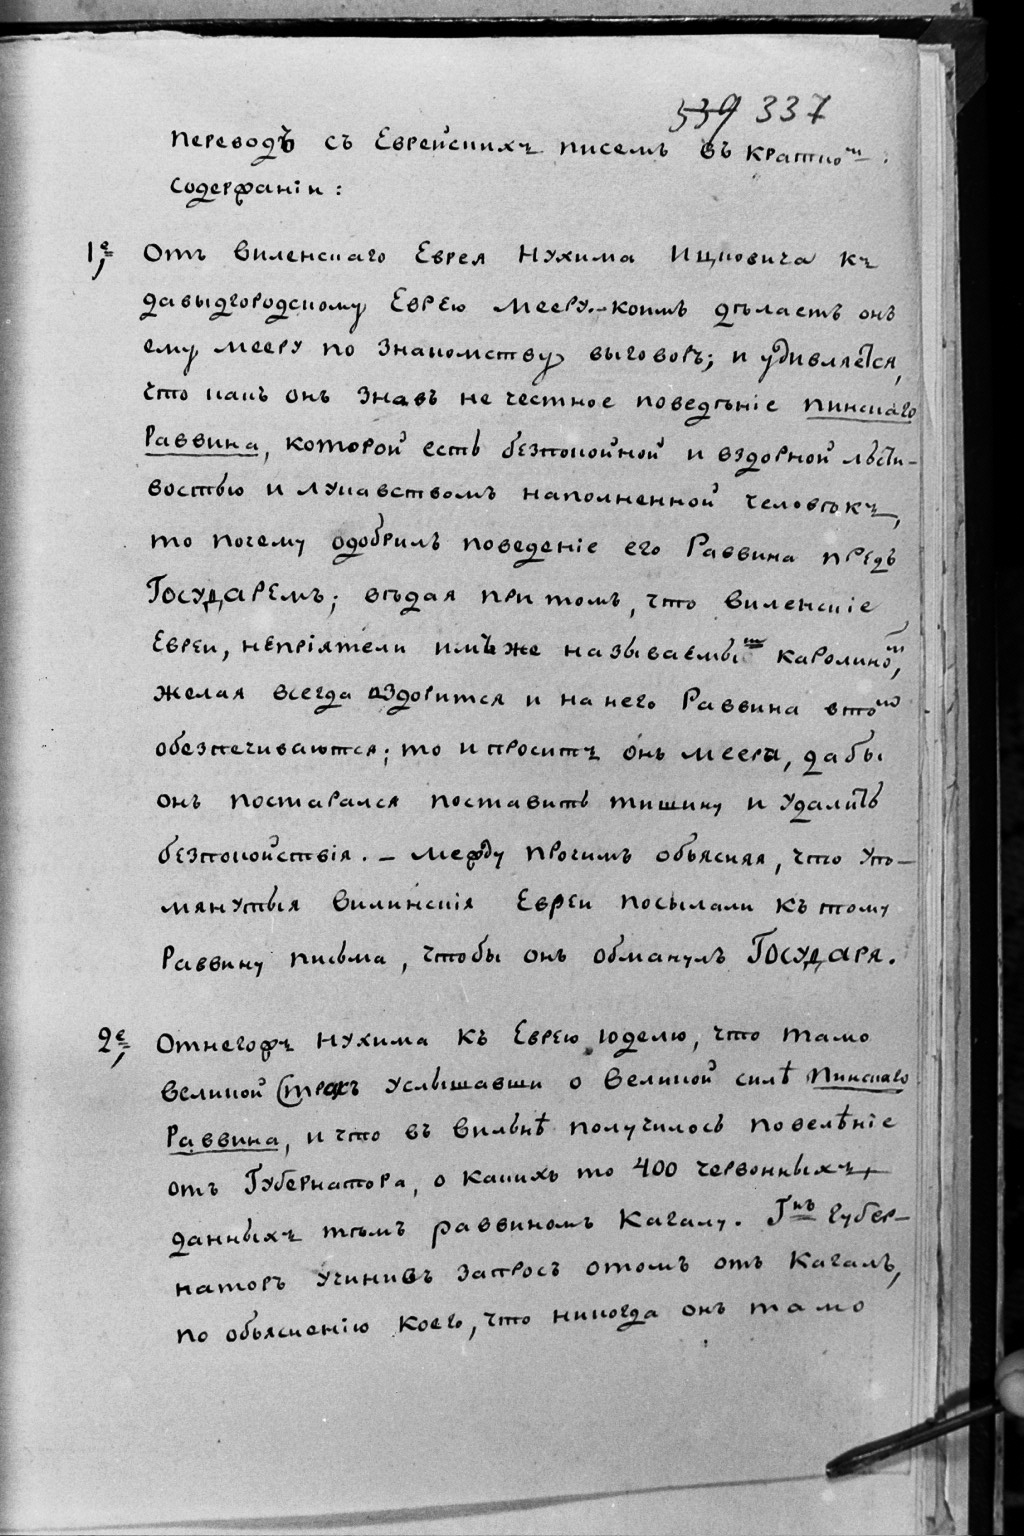 539 337
переводъ съ Еврейскихъ писемъ въ кратко<sup>м</sup>
содержаніи:
1<sup>е</sup>, Отъ виленскаго Еврея Нухима Ицковича къ
давыдгородскому Еврею Мееру.-коимъ дѣлаетъ онъ
ему Мееру по знакомству выговоръ; и удивляется,
что какъ онъ знавъ не честное поведѣніе пинскаго
Раввина, которой есть безпокойной и вздорной лѣсти-
востью и лукавствомъ наполненной человѣкъ,
то почему одобрилъ поведеніе его Раввина предъ
Государемъ; вѣдая притомъ, что виленскіе
Евреи, непріятели имъ же называемы<sup>м</sup> каролино<sup>м</sup>,
желая всегда вздорится и на него Раввина в то<sup>мъ</sup>
обезпечиваются; то и проситъ онъ Меера, дабы
онъ постарался поставить тишину и удалить
безпокойствія. - Между прочимъ объясняя, что упо-
мянутыя вилинскія Евреи посылали къ тому
Раввину письма, чтобы онъ обманулъ Государя.
2<sup>е</sup>, Отнегожъ Нухима къ Еврею Юделю, что тамо
великой Страхъ услышавши о великой силѣ Пинскаго
Раввина, и что въ вильнѣ получилось повелѣніе
отъ Губернатора, о какихъ то 400 червонныхъ
данныхъ тѣмъ раввиномъ Кагалу. Г<sup>нъ</sup> губер-
наторъ учинивъ запросъ отомъ отъ Кагалъ,
по объясненію коего, что никогда онъ тамо